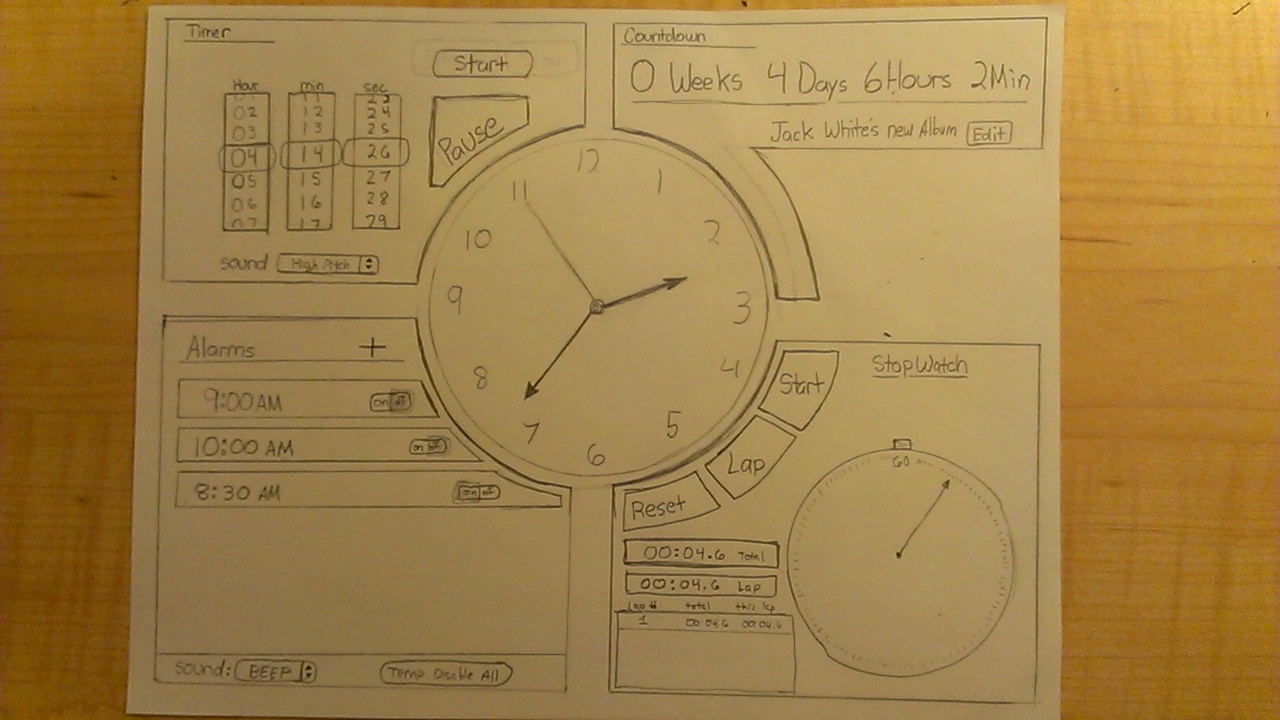 Timer
Start
Pause
Hour min sec
01 11 23
02 12 24
03 13 25
04 14 26
05 15 27
06 16 28
07 17 29
sound High Pitch
Countdown
0 Weeks 4 Days 6 Hours 2 Min
Jack White's new Album Edit
12
1
2
3
4
5
6
7
8
9
10
11
Alarms +
9:00 AM on off
10:00 AM on off
8:30 AM on off
sound: BEEP Temp Disable All
StopWatch
Start
Lap
Reset
60
00:04.6 Total
00:04.6 Lap
Lap # total this lap
1 00:04.6 00:04.6